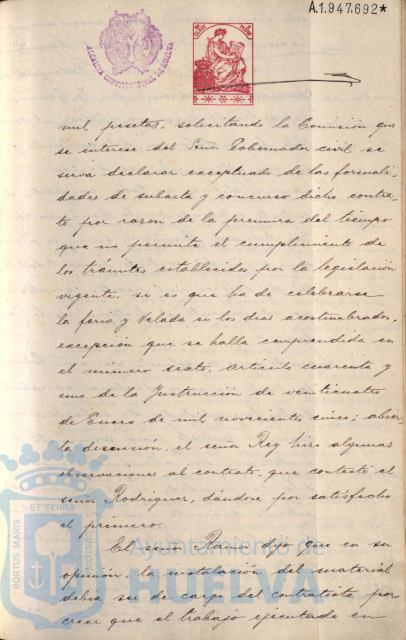 A.1.947.692*
ALCALDIA CONSTITUCIONAL DE HUELVA
mil pesetas, solicitando la Comisión que
se interese del Señor Gobernador civil se
sirva declarar exceptuado de las formali-
dades de subasta y concurso dicho contra-
to por razón de la premura del tiempo
que no permite el cumplimiento de
los trámites establecidos por la legislación
vigente, si es que ha de celebrarse
la feria y Velada en los dias acostumbrados,
excepción que se halla comprendida en
el número sexto, artículo cuarenta y
uno de la Instrucción de veinticuatro
de Enero de mil novecientos cinco; abier-
ta discusión, el señor Rey hizo algunas
observaciones al contrato, que contestó el
señor Rodriguez, dándose por satisfecho
el primero.
El señor dijo que en su
opinión la instalación del material
debia ser de cargo del contratista por
creer que el trabajo ejecutado en
PORTUS MARIS ET TERRÆ CUSTODIA
Ayuntamiento de
HUELVA